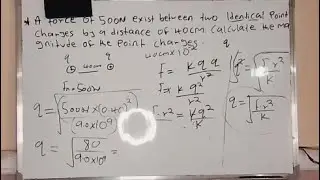 * A force of 500N exist between two Identical Point
charges by a distance of 40cm. Calculate the ma
gnitude of the point charges.
q q
40cm
40cm x10²
f = k q q / r²
f = k q² / r²
f.r² / k = k q² / k
√q² = √f.r² / k
q = √f.r² / k
f = 500N
q = √500N x (0.40)² / (9.0 x 10⁹)
q = √80 / 9.0 x 10⁹ =